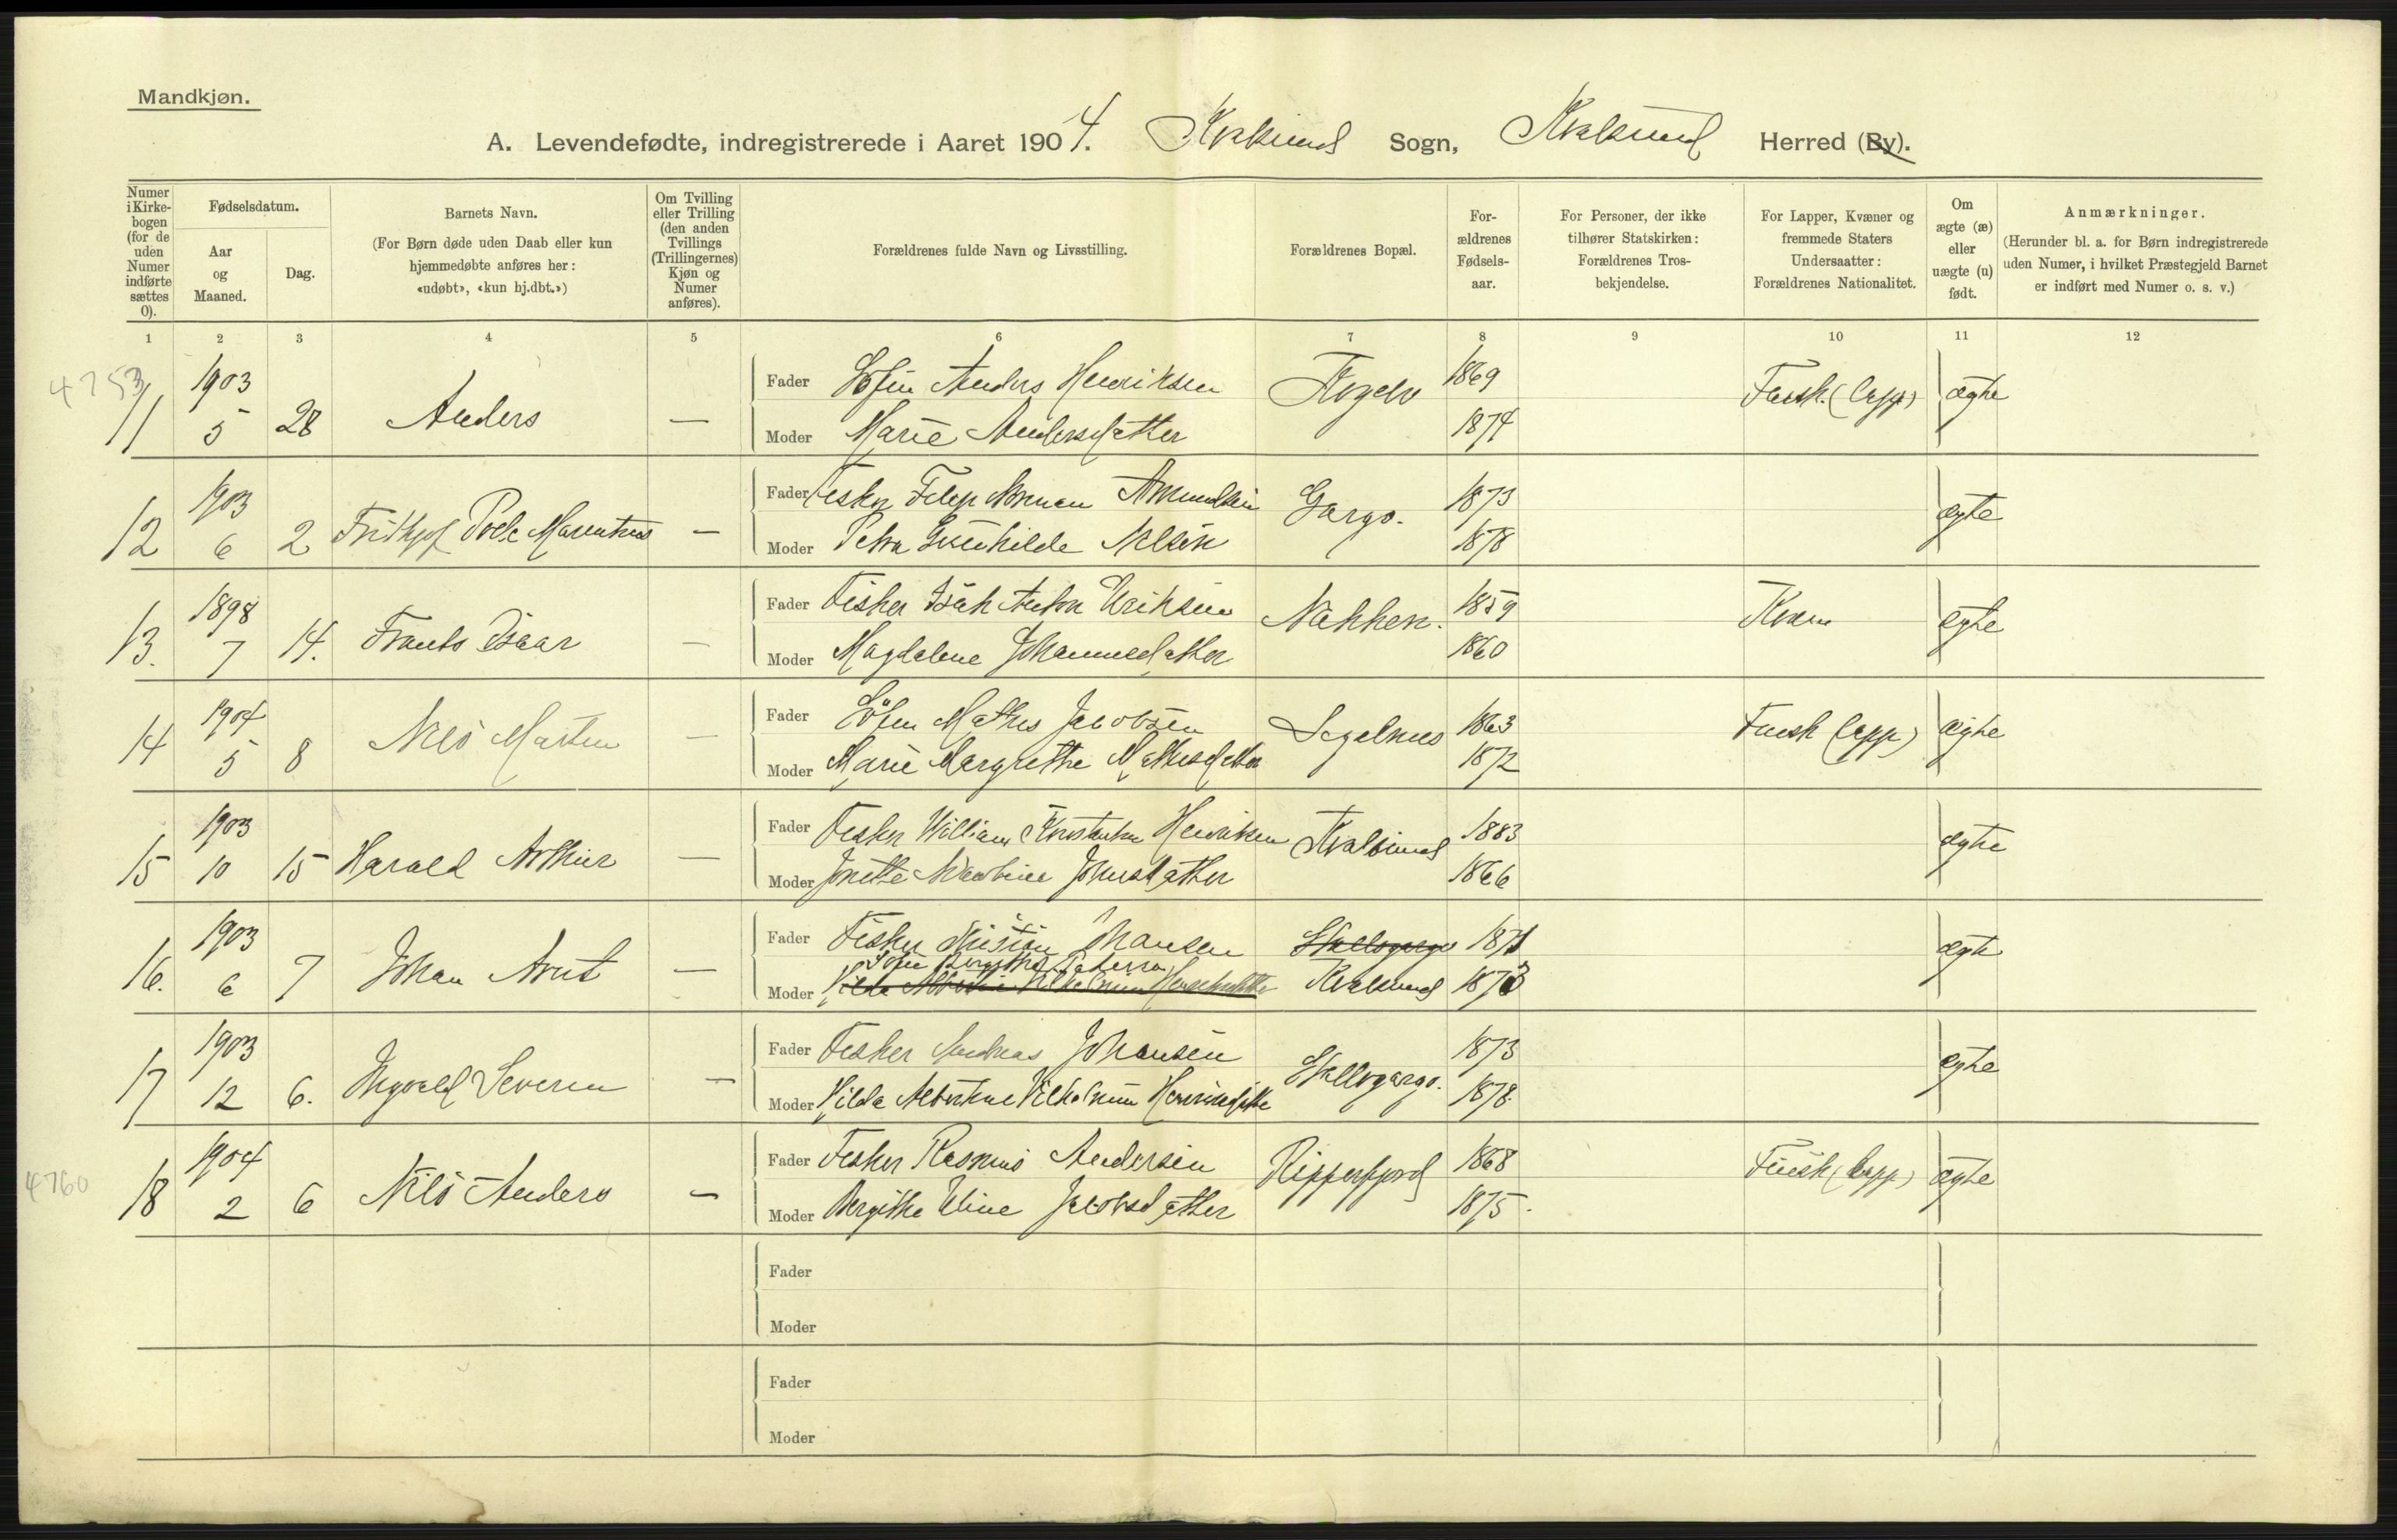 Mandkjøn.
A. Levendefødte, indregistrerede i Aaret 1904. Kvalsund Sogn, Kvalsund Herred (By).
Numer i Kirke-bogen (for de uden Numer indførte sættes 0).
Fødselsdatum.
Aar og Maaned.
Dag.
Barnets Navn.
(For Børn døde uden Daab eller kun hjemmedøbte anføres her: «udøbt», «kun hj.dbt.»)
Om Tvilling eller Trilling (den anden Tvillings (Trillingernes) Kjøn og Numer anføres).
Forældrenes fulde Navn og Livsstilling.
Forældrenes Bopæl.
For-ældrenes Fødsels-aar.
For Personer, der ikke tilhører Statskirken: Forældrenes Tros-bekjendelse.
For Lapper, Kvæner og fremmede Staters Undersaatter: Forældrenes Nationalitet.
Om ægte (æ) eller uægte (u) født.
Anmærkninger.
(Herunder bl. a. for Børn indregistrerede uden Numer, i hvilket Præstegjeld Barnet er indført med Numer o. s. v.)
1 2 3 4 5 6 7 8 9 10 11 12
4753
11 1903 5 28 Anders —
Fader Anders Henriksen 1869 Finsk (lapp) ægte
Moder Marie Andersdatter 1874
12 1903 6 2 —
Fader Fisker Amundsen Gargo. 1873 ægte
Moder Petra Gunhilde Nelsen 1878
13. 1898 7 14. Frants Isaar —
Fader Fisker Isak Anton Eriksen Nakken. 1859 Kvæn ægte
Moder Magdalene Johannesdatter 1860
14 1904 5 8 Nils Marten —
Fader Mathis Jacobsen Segelnes 1863 Finsk (lapp) ægte
Moder Marie Margrethe Mathisdatter 1872
15 1903 10 15 Harald Arthur —
Fader Fisker William Henriksen Kvalsund 1883 ægte
Moder Johnsdatter 1866
16. 1903 6 7 Johan Arnt —
Fader Fisker Kristian Johansen Skallogargo 1871 ægte
Sofie Bergithe Pedersen
Moder Hilda Albertine Vilhelmine Henriksdatter Kvalsund 1873
17 1903 12 6. Ingvald Severin —
Fader Fisker Andreas Johansen Skallogargo. 1873 ægte
Moder Hilda Albertine Vilhelmine Henriksdatter 1878
4760
18 1904 2 6 Nils Anders —
Fader Fisker Rasmus Andersen Repperfjord 1868 Finsk (lapp) ægte
Moder Bergithe Eline Jacobsdatter 1875
Fader
Moder
Fader
Moder